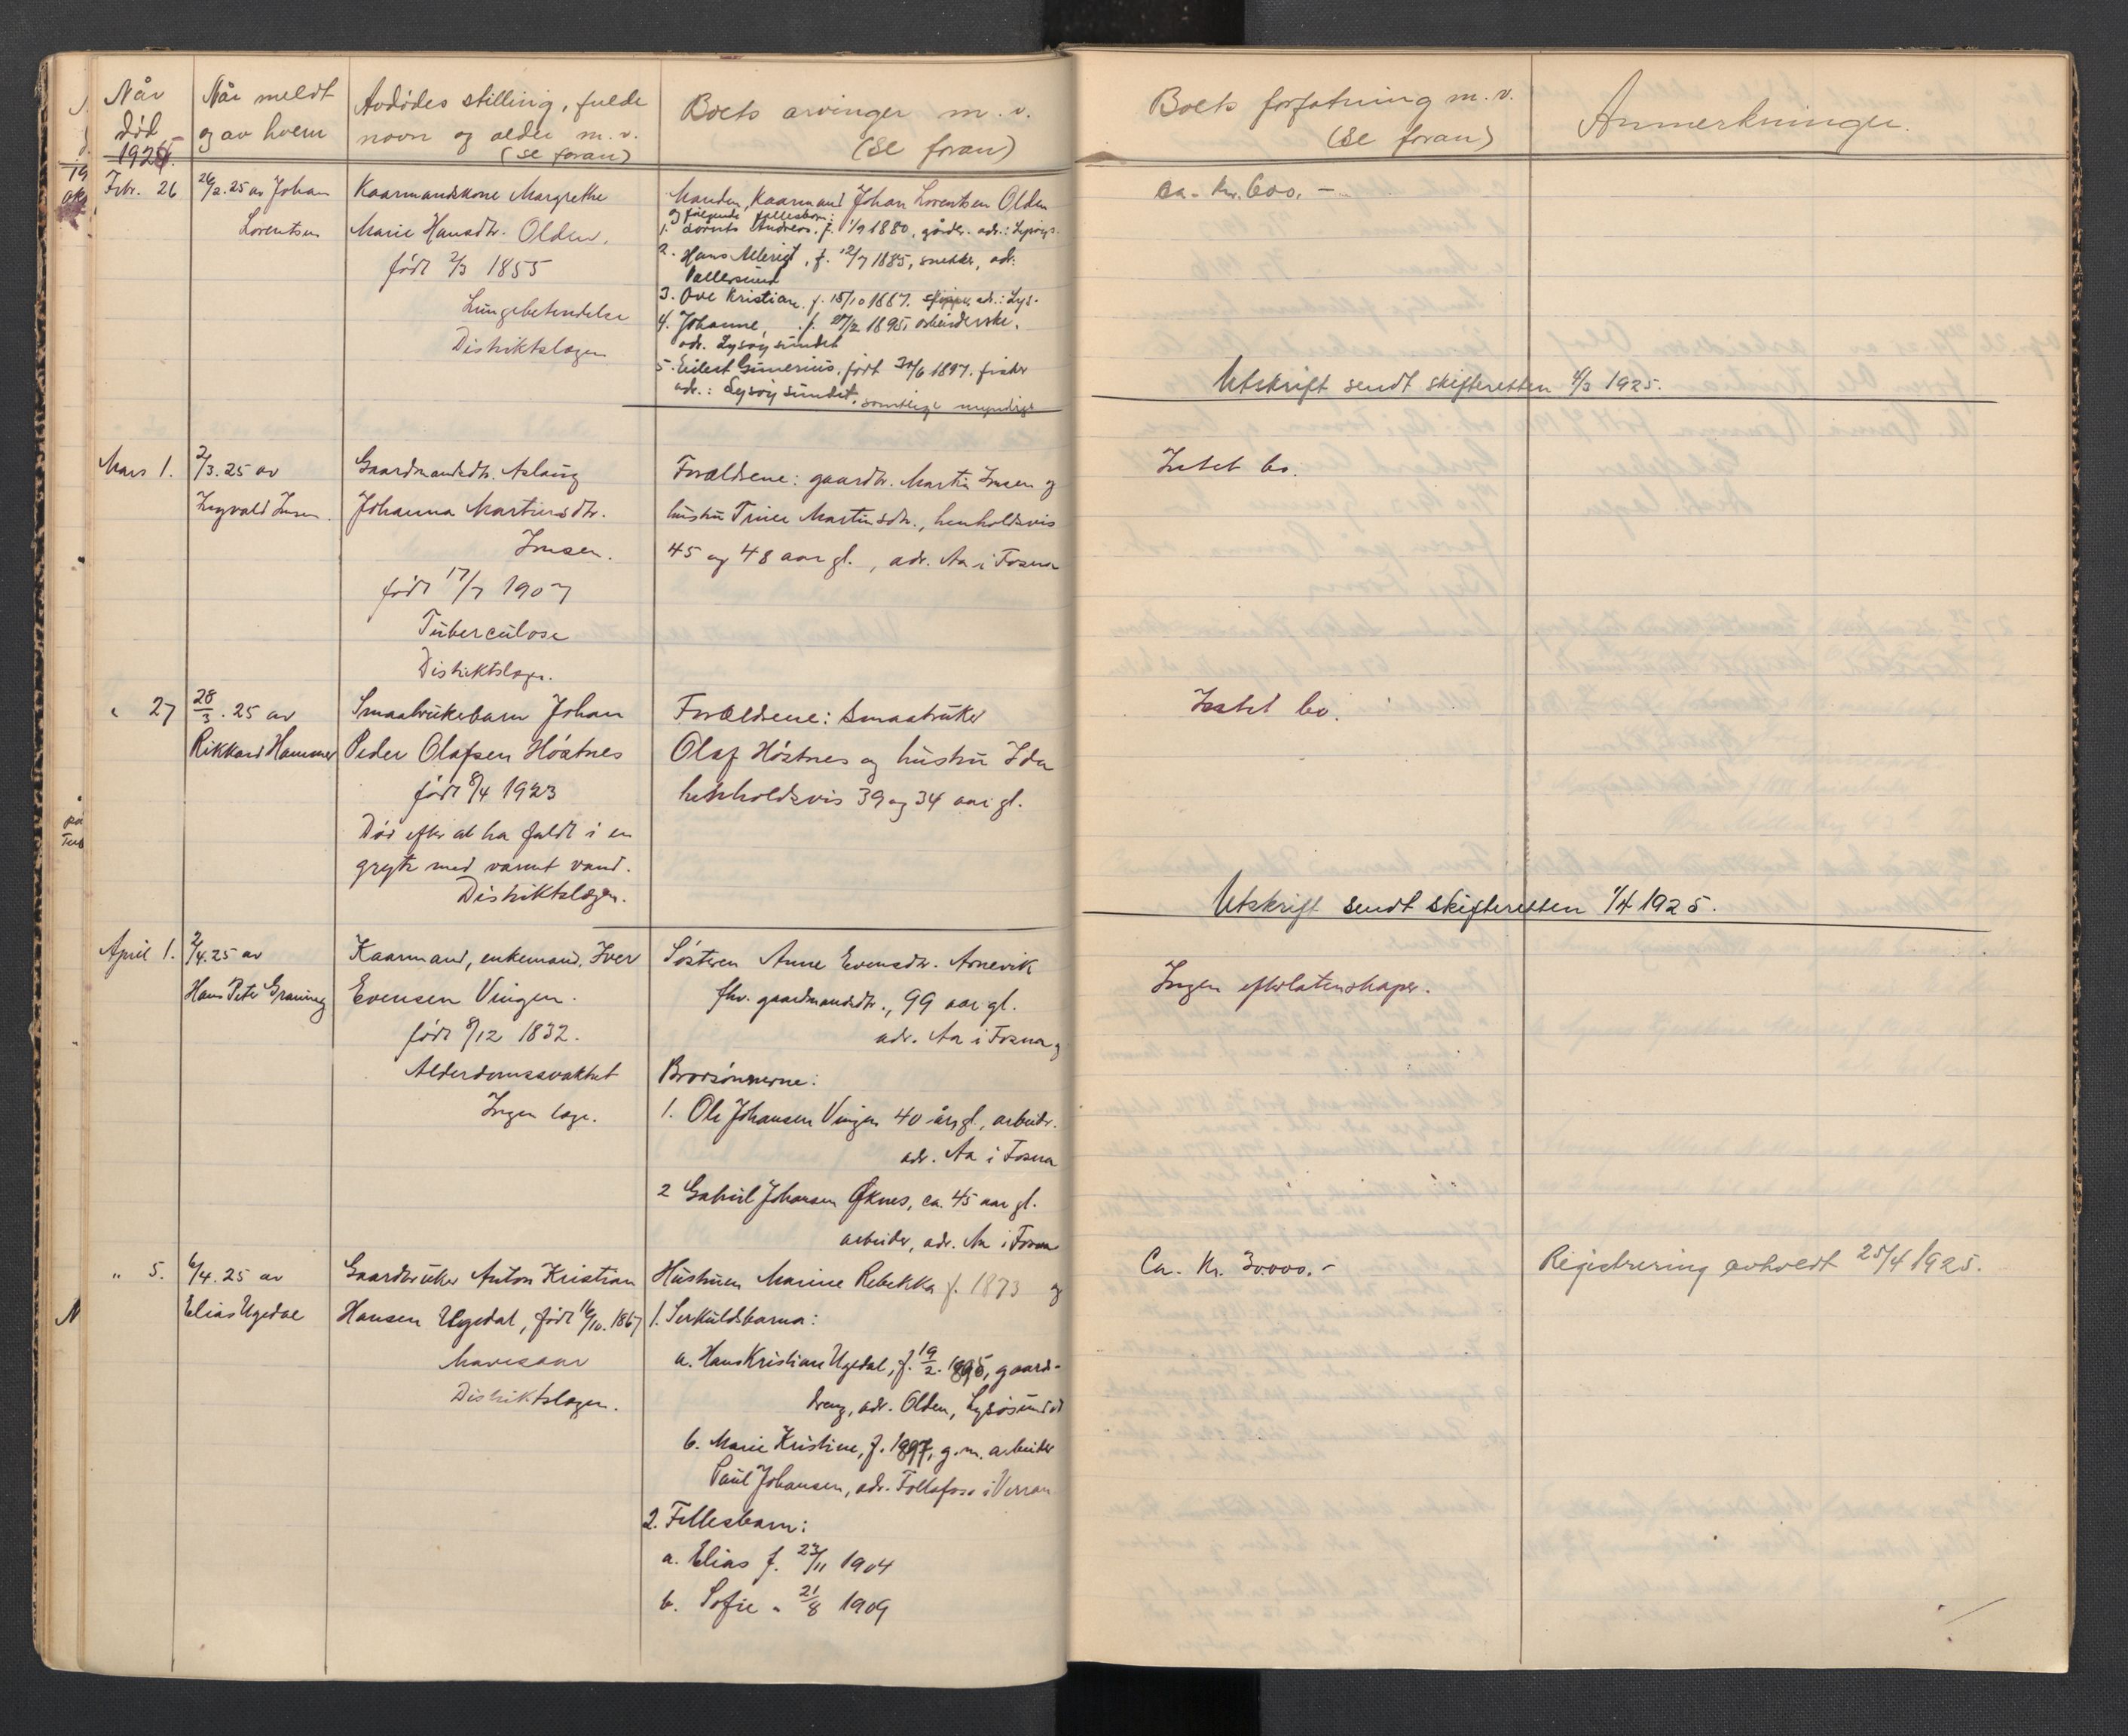 Når
död
1925.
Når meldt
og av hvem
Avdödes stilling, fulde
navn og alder m. v.
(se foran)
Boets arvinger m. v.
(se foran)
Boets forfatning m. v.
(se foran)
Anmerkninger.
Febr. 26
26/2. 25 av Johan
Lorentsen
Kaarmandskone Margrethe
Marie Hansdtr. Olden.
født 2/3 1855
Lungebetendelse
Distriktslægen
Manden, Kaarmand Johan Lorentsen Olden
og følgende fællesbørn:
1. Lorents Andreas, f. 1/9 1880, gårdbr. adr.: Lysøys.
2. Hans Alberigt, f. 12/7 1885, snekker, adr.
Vallersund
3. Ove Kristian f. 15/10 1887. skipper, adr.: Lys-
4. Johanne, f. 27/2 1895, arbeiderske.
adr. Lysøysundet
5. Eilert Gunerius, født 30/6 1897. fisker
adr.: Lysøysundet. samtlige myndige
ca. kr. 600.-
Utskrift sendt skifteretten 4/3 1925.
Mars 1.
2/3. 25 av
Ingvald Insen.
Gaardmandsdtr. Aslaug
Johanna Martinsdtr.
Insen.
født 17/7 1907
Tuberculose
Distriktslægen.
Forældrene: gaardbr. Martin Insen og
hustru Trine Martinsdtr., henholdsvis
45 og 48 aar gl., adr. Aa i Fosna
Intet bo.
" 27
28/3. 25 av
Rikkard Hammer
Smaabrukerbarn Johan
Peder Olafsen Höstnes
født 8/4 1923
Död efter at ha faldt i en
gryte med varmt vand.
Distriktslægen.
Forældrene: Smaabruker
Olaf Höstnes og hustru Ida
henholdsvis 39 og 34 aar gl.
Intet bo.
Utskrift sendt skifteretten 1/4 1925.
April 1.
2/4. 25 av
Hans Peter Graning
Kaarmand, enkemand, Iver
Evensen Vingen.
født 8/12 1832.
Alderdomssvakhet
Ingen læge.
Søsteren Anne Evensdtr. Arnevik
fhv. gaardmandsdtr., 99 aar gl.
adr. Aa i Fosna og
Brorsönnerne:
1. Ole Johansen Vingen 40 år gl., arbeider.
adr. Aa i Fosna
2 Gabriel Johansen Øknes, ca. 45 aar gl.
arbeider, adr. Aa i Fosna
Ingen efterlatenskaper.
" 5.
6/4. 25 av
Elias Ugedal
Gaardbruker Anton Kristian
Hansen Ugedal, født 16/10. 1867
Mavesaar
Distriktslægen.
Hustruen Marine Rebekka f. 1873 og
1. Serkuldsbarna:
a. Hans Kristian Ugedal, f. 19/2. 1895, gaard-
dreng, adr. Olden, Lysøsundet
b. Marie Kristine, f. 1897, g. m. arbeider
Paul Johansen, adr. Follafoss i Verran
2. Fellesbarn:
a. Elias f. 23/11 1904
b. Sofie " 21/8 1909
Ca. Kr. 30000.-
Registrering avholdt 25/4 1925.